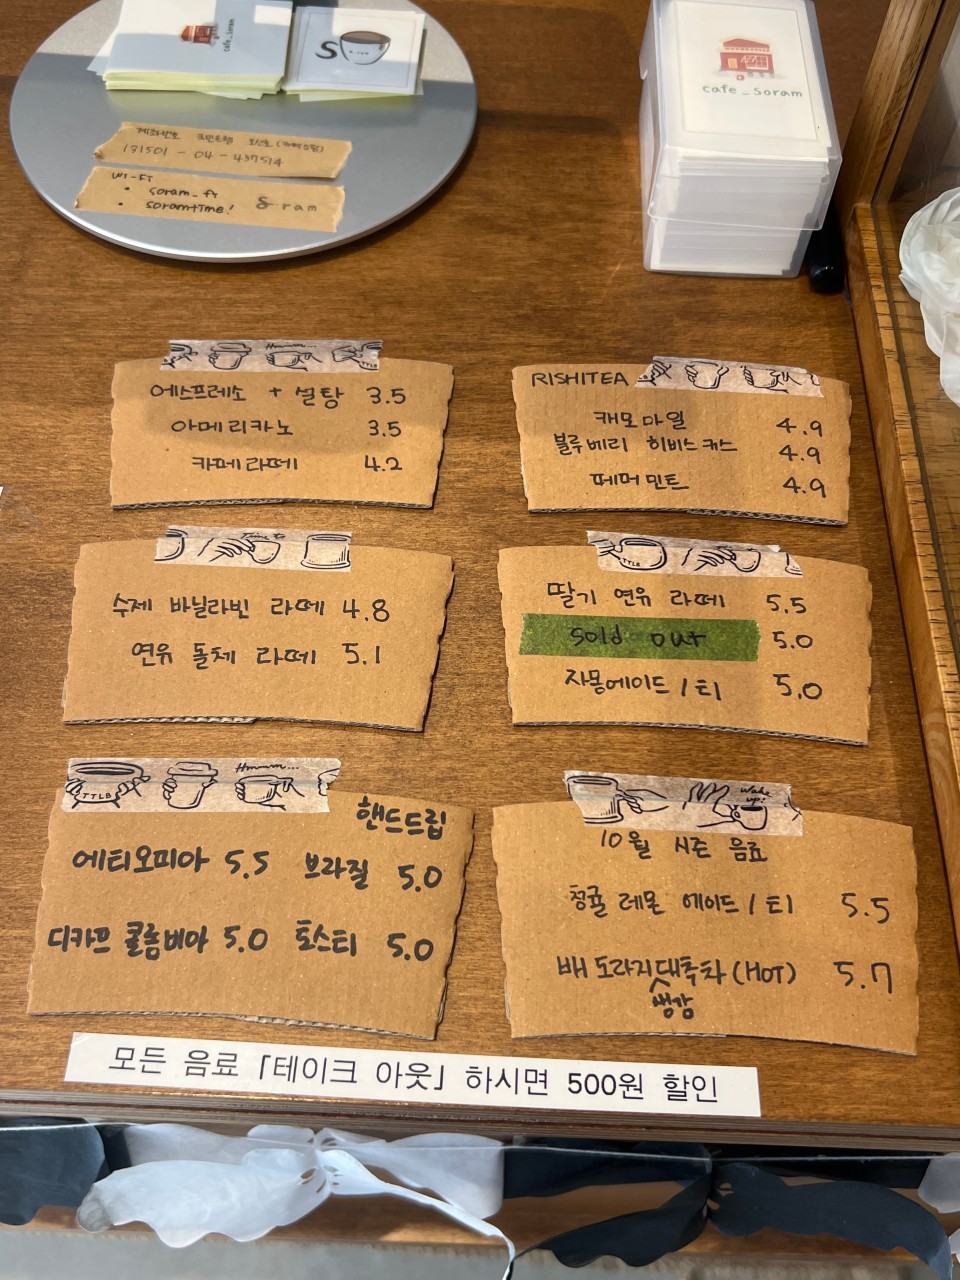 cafe_soram
S
cafe_soram
계좌번호 국민은행
131501-04-437514
WI-FI
• soram_ft
• soramtime!
S ram
Hmmm...
에스프레소 + 설탕 3.5
아메리카노 3.5
카페라떼 4.2
RISHITEA
캐모마일 4.9
블루베리 히비스커스 4.9
페퍼민트 4.9
수제 바닐라빈 라떼 4.8
연유 돌체 라떼 5.1
TTLB
딸기 연유 라떼 5.5
Sold out 5.0
자몽에이드/티 5.0
TTLB
Hmmm...
핸드드립
에티오피아 5.5 브라질 5.0
디카프 콜롬비아 5.0 토스티 5.0
Wake up!
10월 시즌 음료
청귤 레몬 에이드/티 5.5
배 도라지 대추차 (HOT) 5.7
생강
모든 음료 「테이크 아웃」 하시면 500원 할인